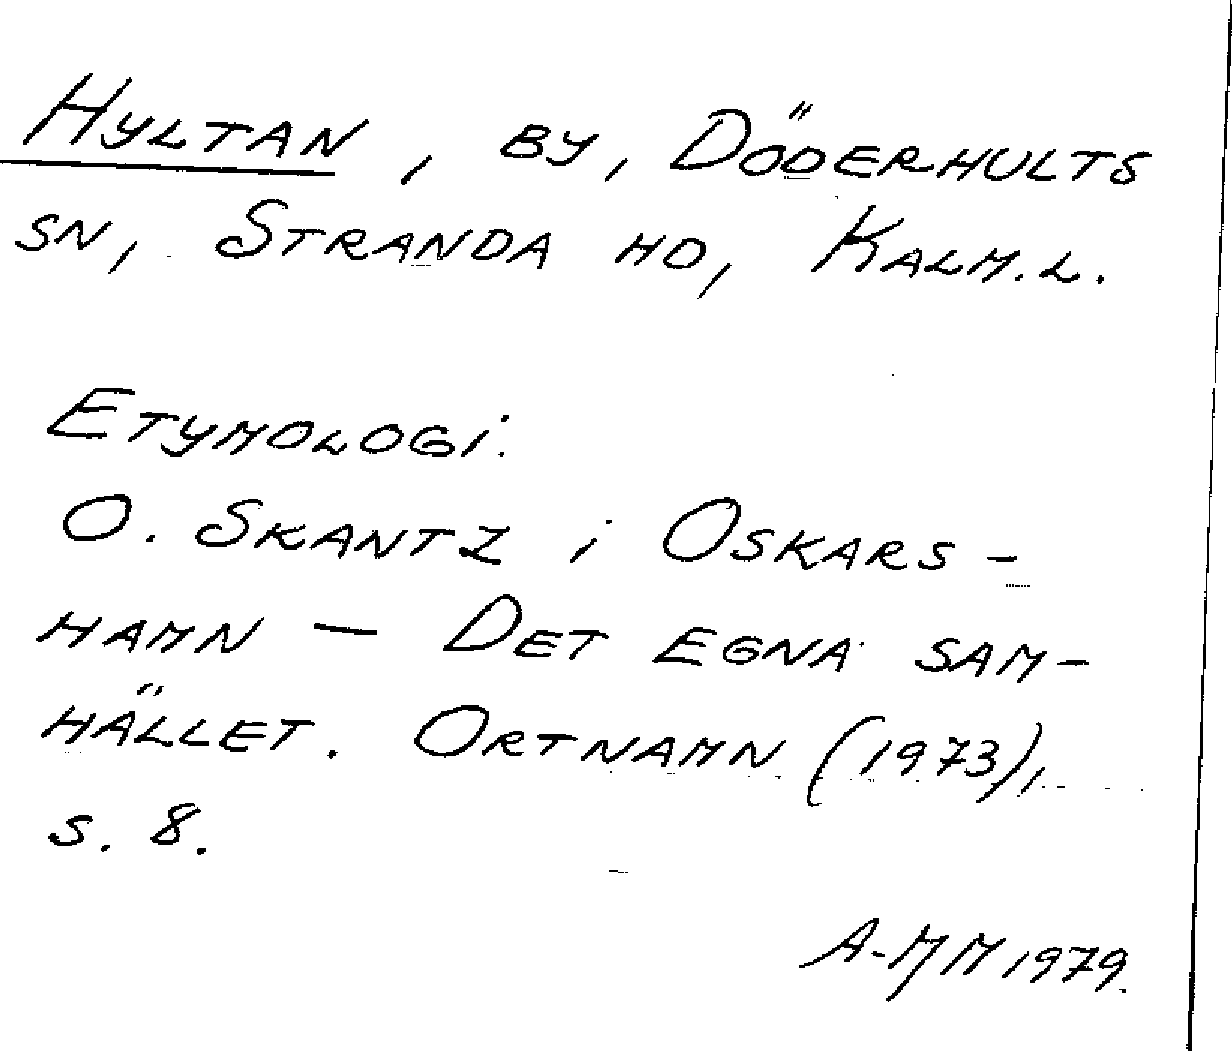 Hyltan, by, Döderhults
sn, Stranda hd, Kalm.l.
Etymologi:
O. Skantz i Oskars-
hamn – Det egna sam-
hället. Ortnamn (1973),
s. 8.
A-MM 1979.